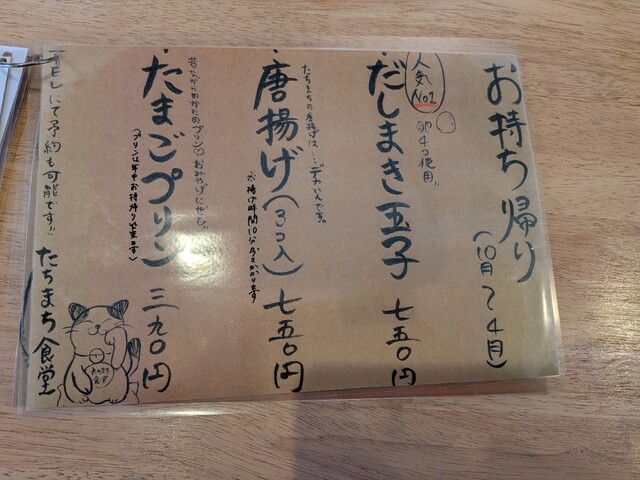 お持ち帰り
(10月〜4月)
人気
No1
卵4コ使用!!
だしまき玉子 七五〇円
たちまちの唐揚げは…デカいんです。
唐揚げ(3コ入) 七五〇円
※揚げ時間10分ほどかかります
昔ながらのかためのプリン♡おみやげにぜひ。
たまごプリン 三九〇円
(プリンは年中お持帰り出来ます)
にて予約も可能です!!
たちまち食堂